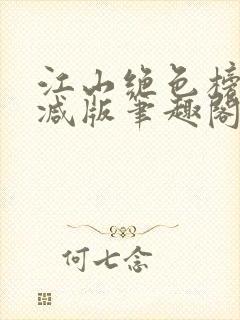 江山绝色榜
减版笔趣阁
何七念